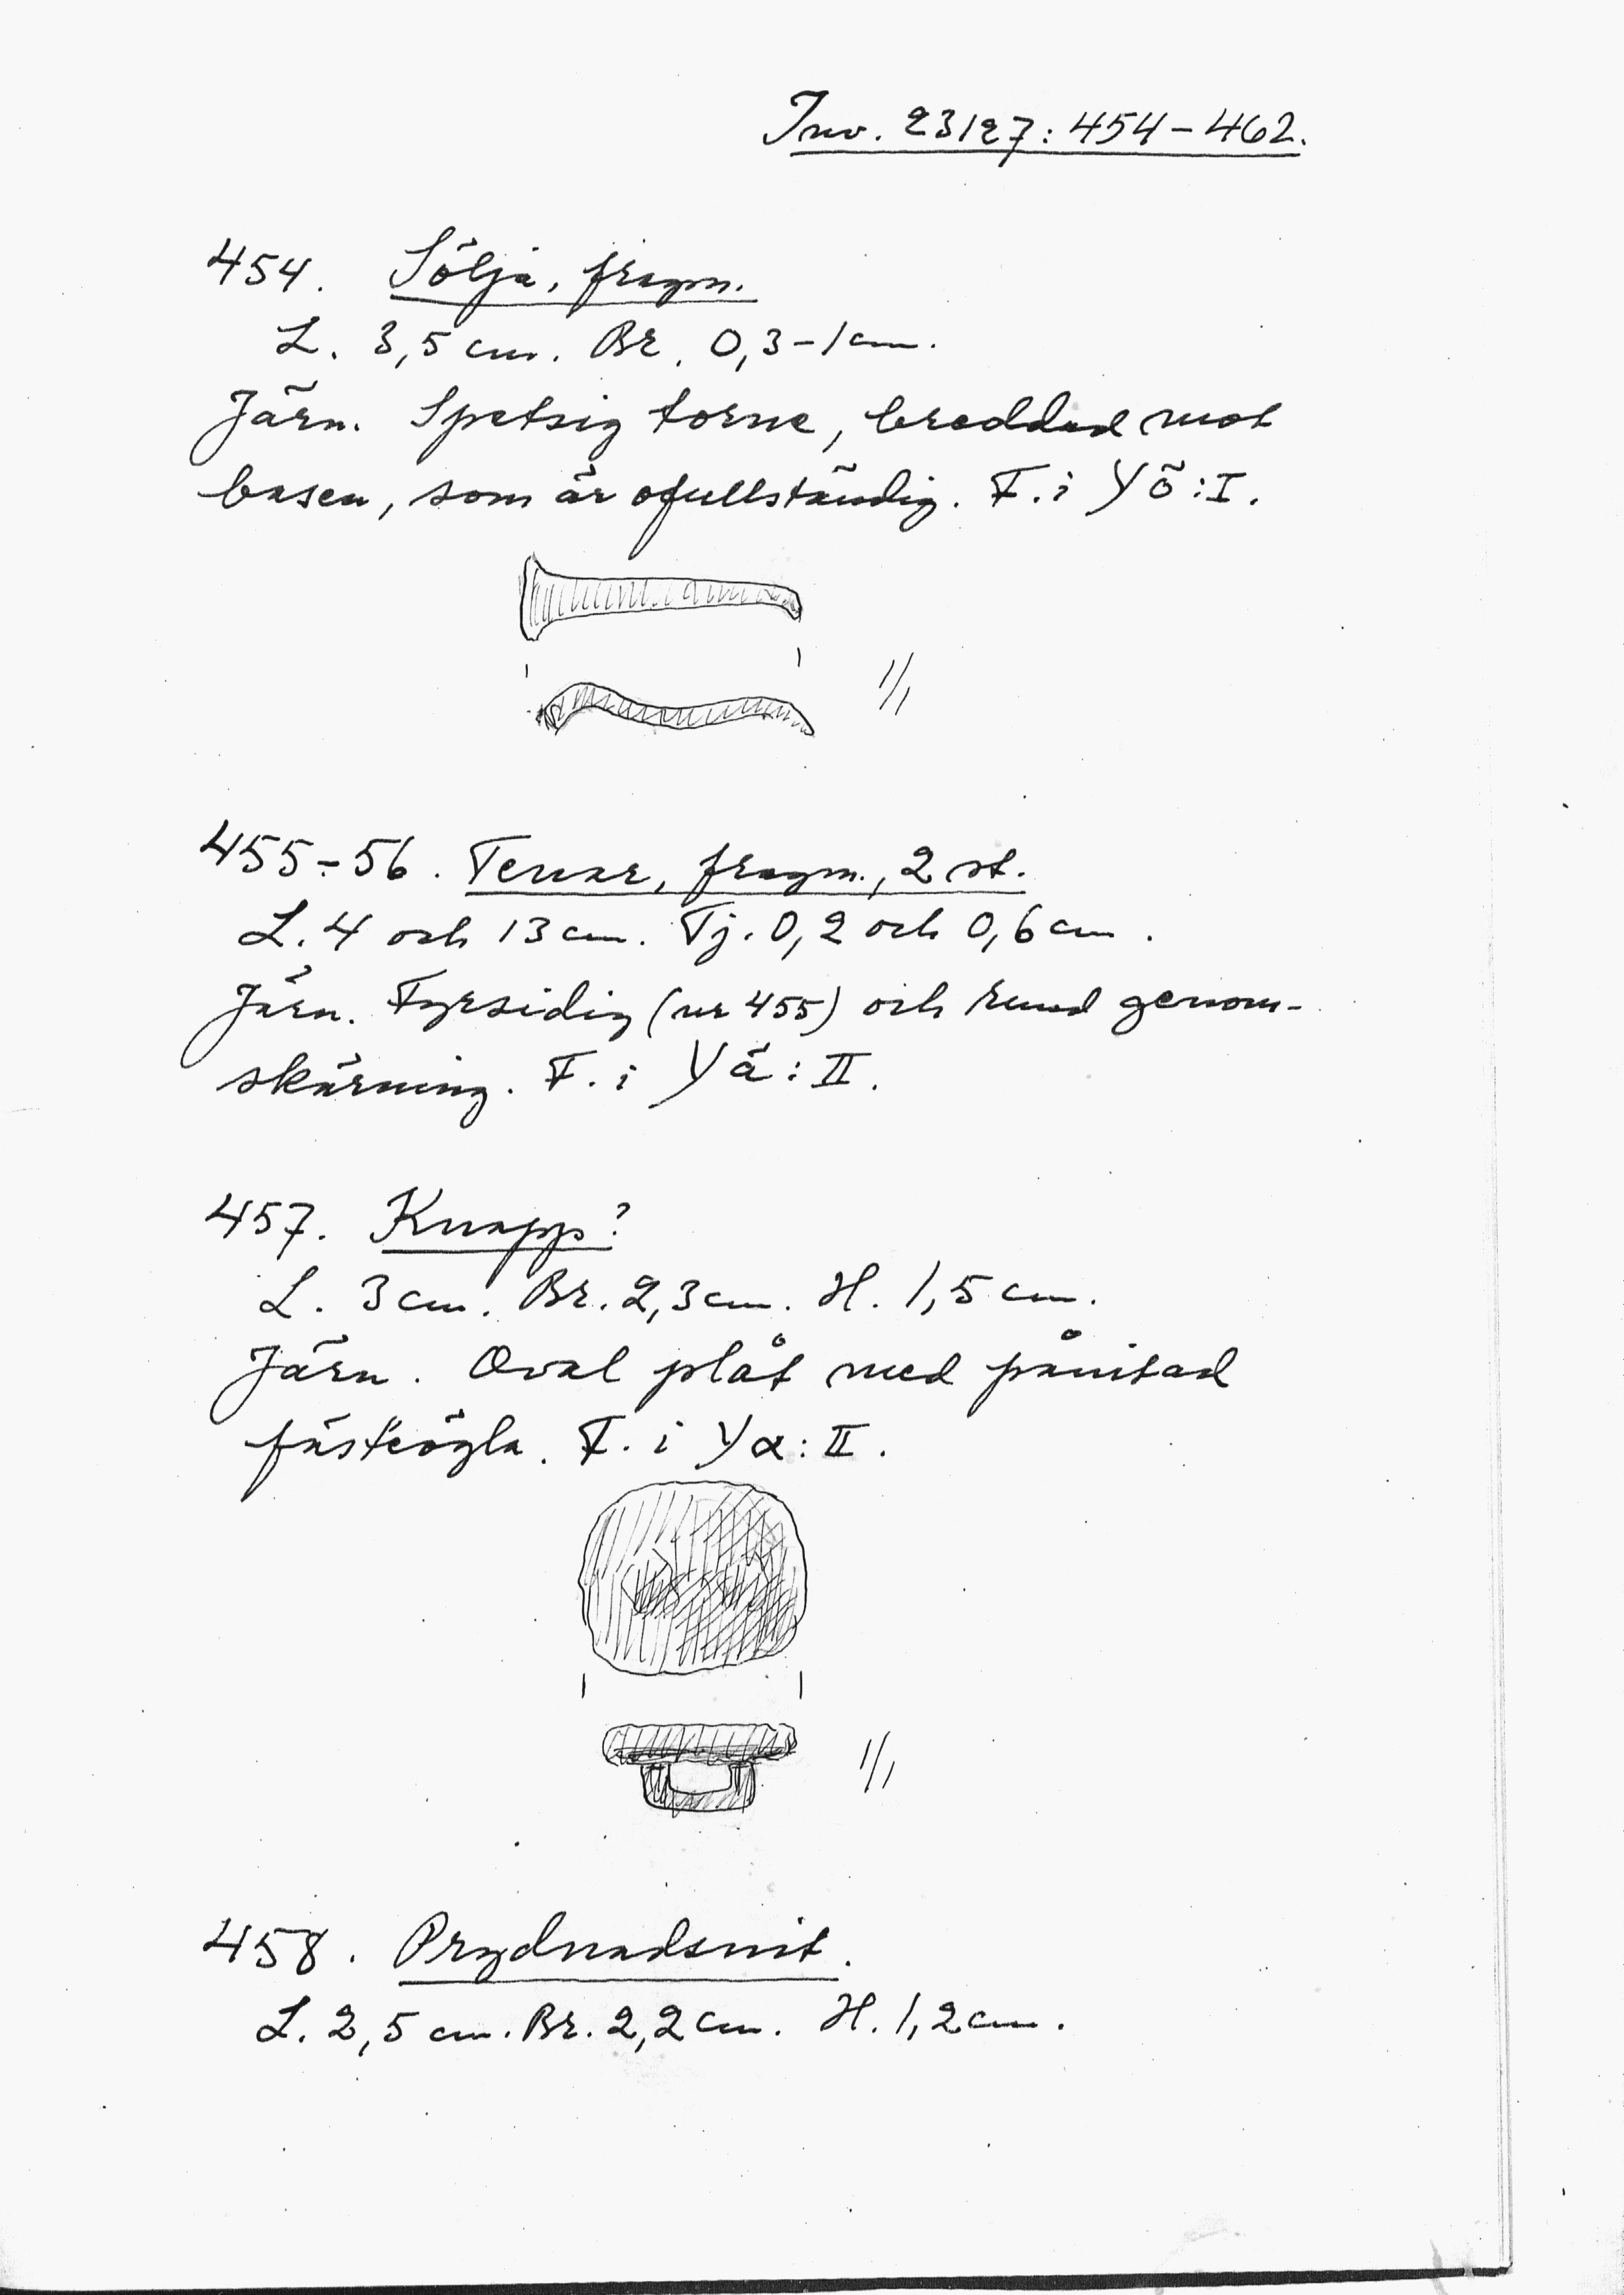 Inv. 23127:454-462.
454. Sölja, fragm.
L. 3,5 cm. Br. 0,3-1 cm.
Järn. Spetsig torne, breddad mot
basen, som är ofullständig. F. i Yö:I.
1/1
455-56. Tenar, fragm., 2 st.
L. 4 och 13 cm. Tj. 0,2 och 0,6 cm.
Järn. Fyrsidig (nr 455) och rund genom-
skärning. F. i Yä:II.
457. Knapp?
L. 3 cm. Br. 2,3 cm. H. 1,5 cm.
Järn. Oval plåt med pånitad
fästeögla. F. i Yx:II.
1/1
458. Prydnadsnit.
L. 2,5 cm. Br. 2,2 cm. H. 1,2 cm.